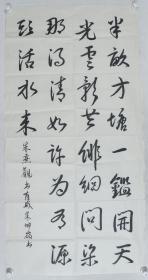 半畝方塘一鑑開天
光雲影共徘徊問渠
那得清如許為有源
頭活水来
朱熹觀書有感